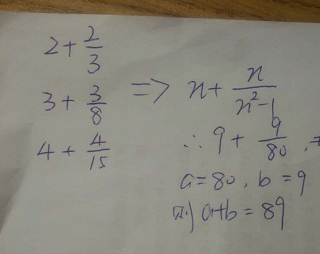 2+2/3
3+3/8 => n+n/(n²-1)
4+4/15
∴ 9+9/80,
a=80, b=9
则 a+b=89